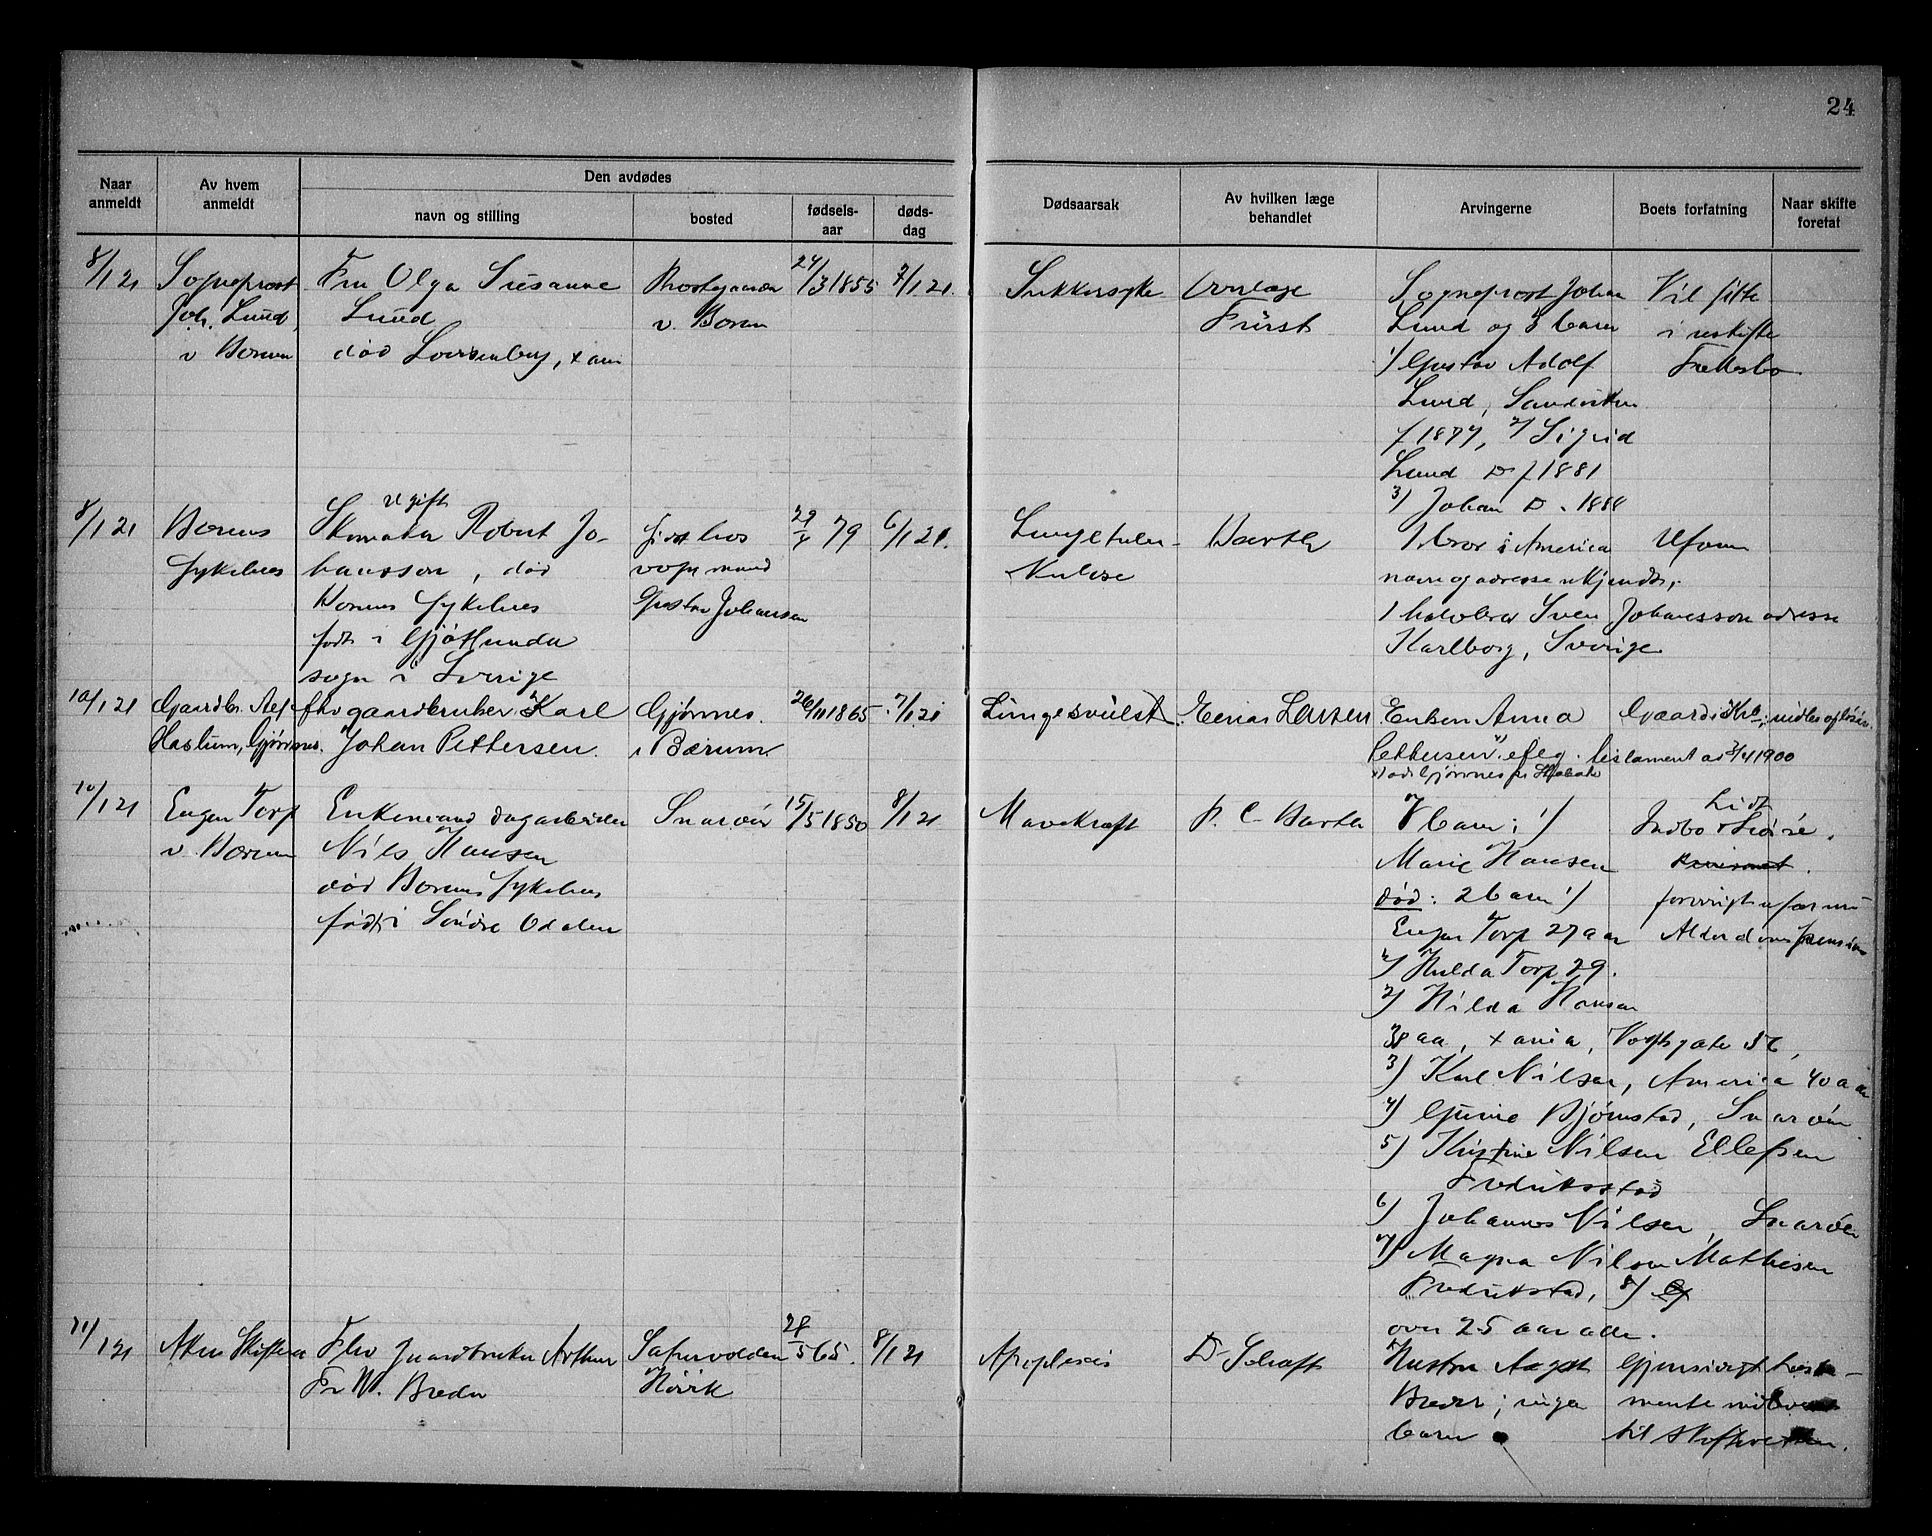 24
Naar anmeldt
Av hvem anmeldt
Den avdødes
navn og stilling
bosted
fødsels-aar
døds-dag
Dødsaarsak
Av hvilken læge behandlet
Arvingerne
Boets forfatning
Naar skifte foretat
8/1 21
Sogneprost
Joh. Lund,
v Bærum
Fru Olga Susanne
Lund
død
v. Bærum
24/3 1855
7/1 21.
Sukkersyke
Overlæge
Fürst
Sogneprost Johan
Lund og 3 barn
1) Gustav Adolf
Lund, Sandviken
f 1877, 2) Sigrid
Lund D f 1881
3) Johan D. 1888
Vil sitte
i uskifte
Fællesbo
8/1 21
Bærums
sykehus
Ugift
Skomaker Robert Jo-
hansson, død
Bærums sykehus
født i
sogn i Sverige
hos
Gustav Johansen
79
6/1 21.
Lungetuber-
kulose
Barth
1 bror i America
navn og adresse ukjendt,
1 halvbror Sven Johansson adresse
Karlborg, Sverige
10/1 21
Gaardbr.
Haslum, Gjønnes.
fhv gaardbruker Karl
Johan Pettersen.
Gjønnes.
i Bærum
26/11 1865
7/1 21
Lungesvulst.
Einar Larsen
Enken Anna
Pettersen efter testament av 3/4 1900
10/1 21
Eugen Torp
v. Bærum
Enkemand dagarbeider
Nils Hansen
død Bærums sykehus
født i Søndre Odalen
Snarøen
15/5 1850
8/1 21
Mavekræft
P. C. Barth
7 barn: 1)
Marie Hansen
død: 2 barn 1)
Eugen Torp 27 aar
2) Hulda Torp 29.
2) Hilda Hansen
38 aa, xania, Vogtsgate 56,
3) Karl Nilsen, America 40 aar
4) Gunne Bjørnstad, Snarøen
5) Kristine Nilsen Ellefsen
Fredriksstad
6) Johannes Nilsen, Snarøen
7) Magna Nilsen Mathisen
Fredrikstad, 8)
over 25 aar alle.
Lidt
Indbo & Løsøre.
Alderdoms pension
11/1 21
Aker Skifteret
Fhv gaardbruker Arthur
Fr. W. Breder
Høvik
28/5 65.
8/1 21
Apoplexis
Dr Schaft
Hustru
Breder; ingen
barn
Gjensidigt testa-
mente
til Skifteretten.